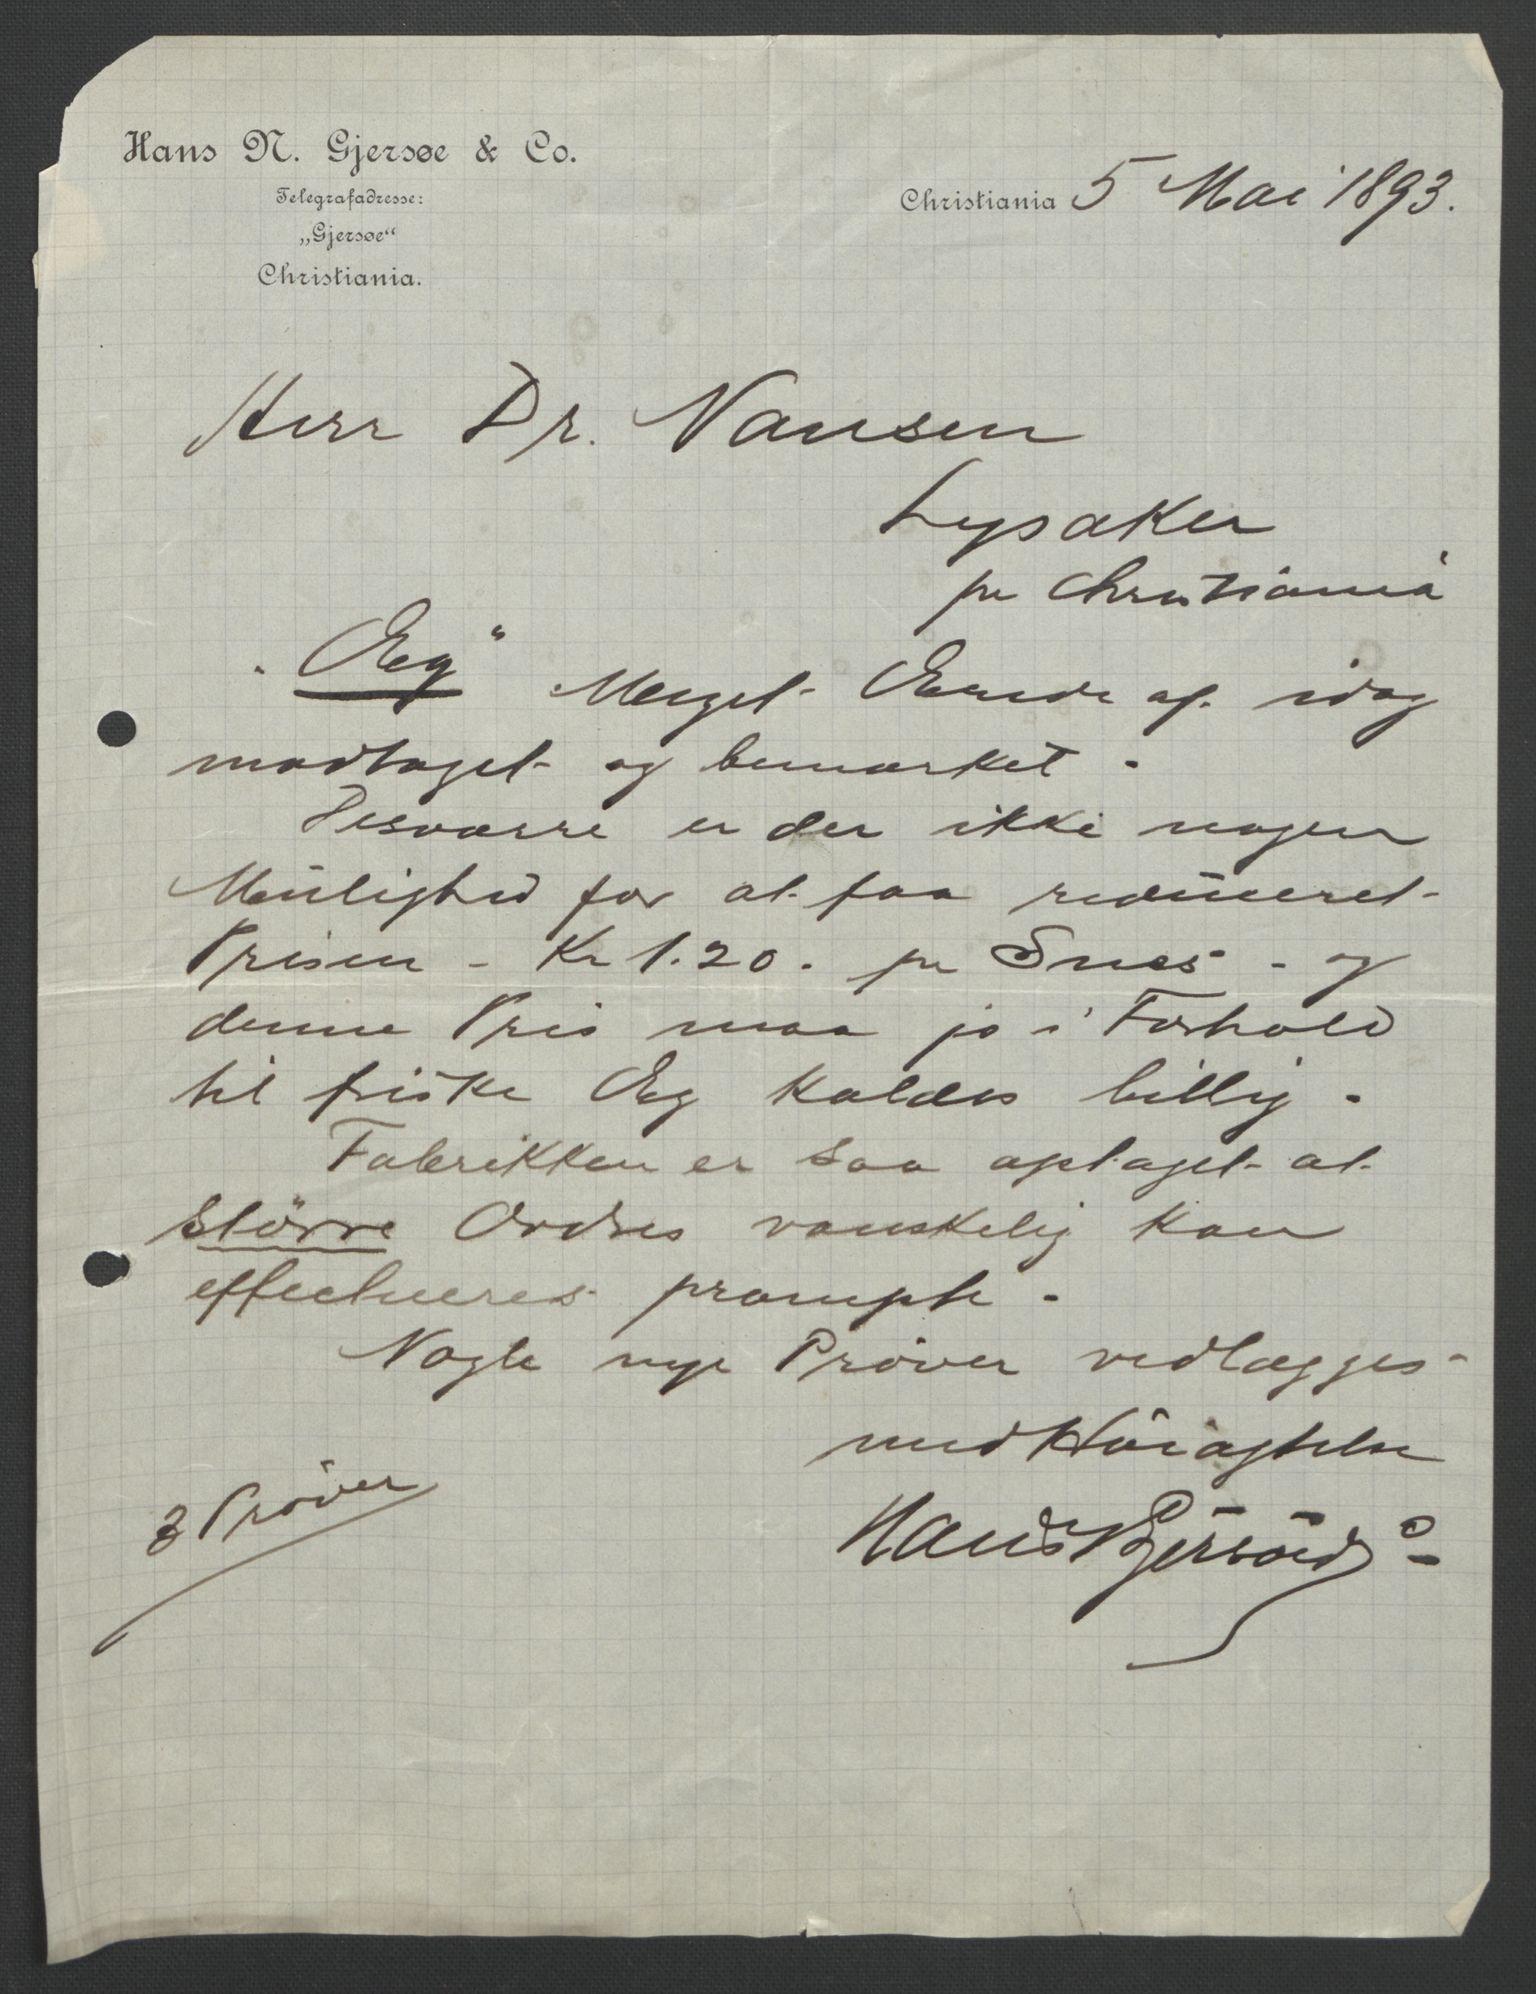 Hans N. Gjersøe & Co.
Telegrafadresse:
„Gjersøe“
Christiania.
Christiania 5 Mai 1893.
Herr Dr. Nansen
Lysaker
pr Christiania
„Æg“ Meget Ærede af. idag
modtaget og bemærket.
Desværre er der ikke nogen
Mulighed for at faa reduceret
Prisen - Kr 1.20. pr Snes - og
denne Pris maa jo i Forhold
til friske Æg kaldes billig.
Fabrikken er saa optaget at
större Ordres vanskelig kan
effectueres prompte.
Nogle nye Pröver vedlægges
med Höiagtelse
Hans N Gjersöe & Co
3 Pröver